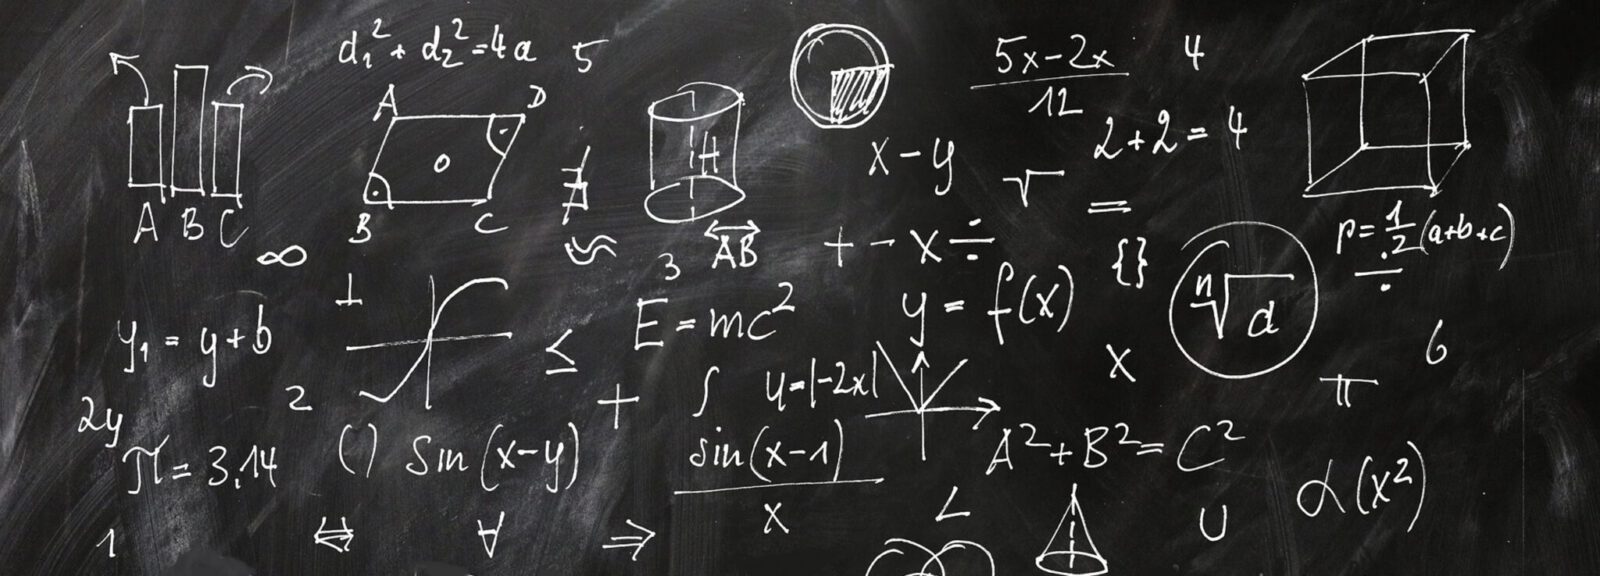 d₁² + d₂² = 4a
5
5x-2x
12
4
A
D
O
B
C
A B C
H
x-y
√
2+2=4
=
∄
∞
≈
3
AB
+ - x ÷
{}
p=1/2(a+b+c)
÷
⊥
y₁ = y+b
≤
E=mc²
y = f(x)
ⁿ√d
x
6
2y
2
+
∫
y=|-2x|
π
π=3,14
()
Sin(x-y)
sin(x-1)
x
A²+B²=C²
α(x²)
1
⇔
∀
⇒
∠
∪